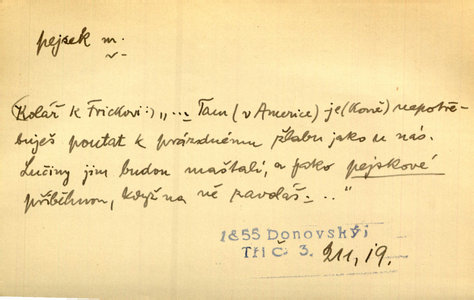 pejsek m.
(Kolář k Frickovi:) „... Tam (v Americe) je (koně) nepotře-
buješ poutat k prázdnému žlabu jako u nás.
Lučiny jim budou maštalí, a jako pejskové
přiběhnou, když na ně zavoláš ..."
1855 Donovský
Tři č. 3. 211, 19.